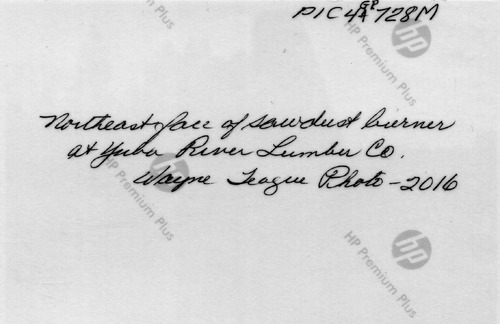 PIC 4 GP 728M
Northeast face of sawdust burner
at Yuba River Lumber Co.
Wayne Teague Photo - 2016
hp
HP Premium Plus
hp
HP Premium Plus
hp
HP Premium Plus
hp
HP Premium Plus